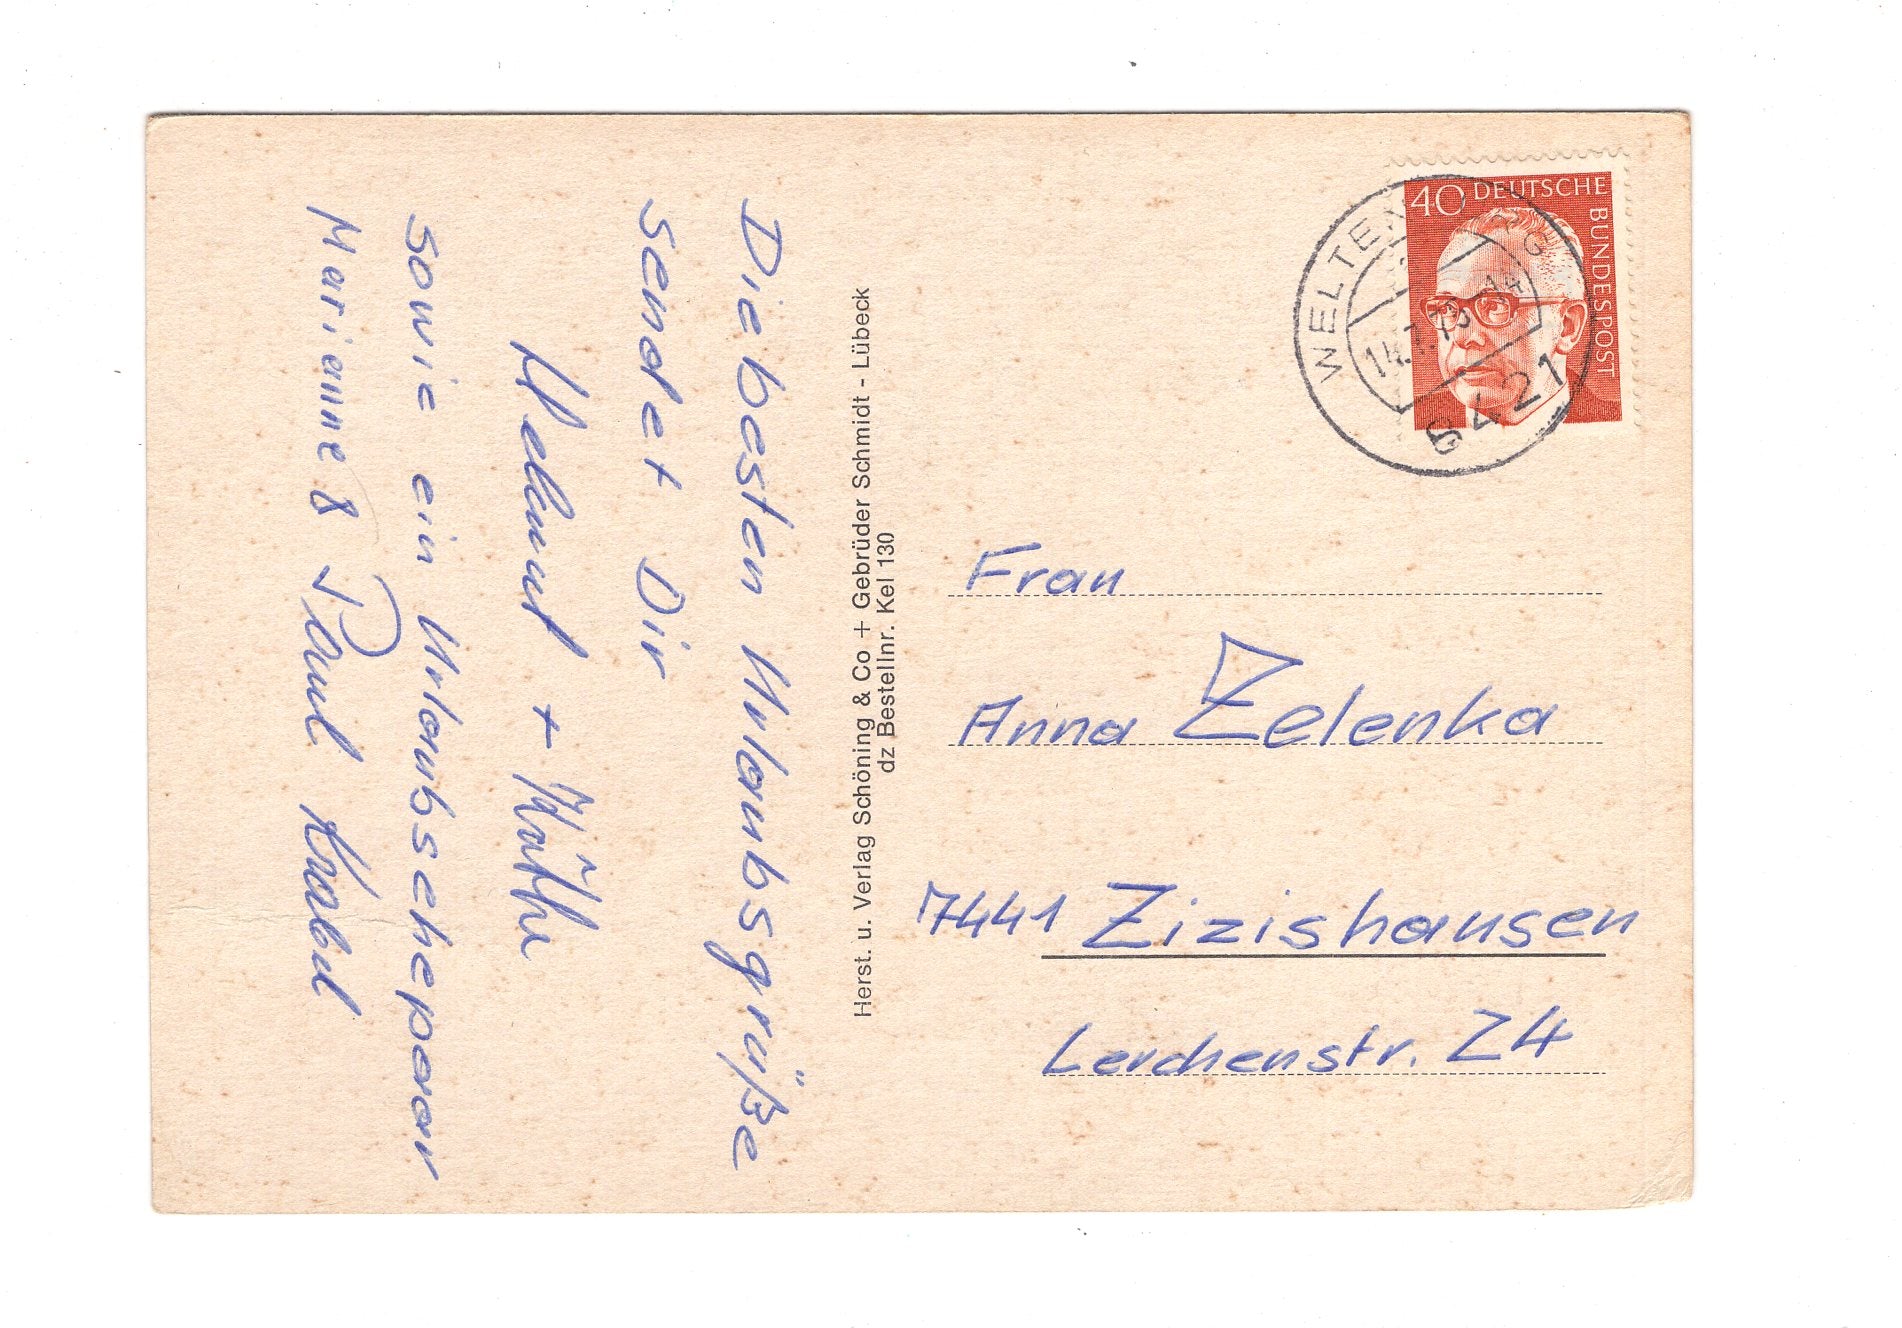 Die besten Urlaubsgrüße
sendet Dir
Helmut + Käthe
sowie ein Urlaubsehepaar
Marianne & Paul
Herst. u. Verlag Schöning & Co + Gebrüder Schmidt - Lübeck
dz Bestellnr. Kel 130
40 DEUTSCHE
BUNDESPOST
WELTENBURG
14.7.73-14
8421
Frau
Anna Zelenka
7441 Zizishausen
Lerchenstr. 24